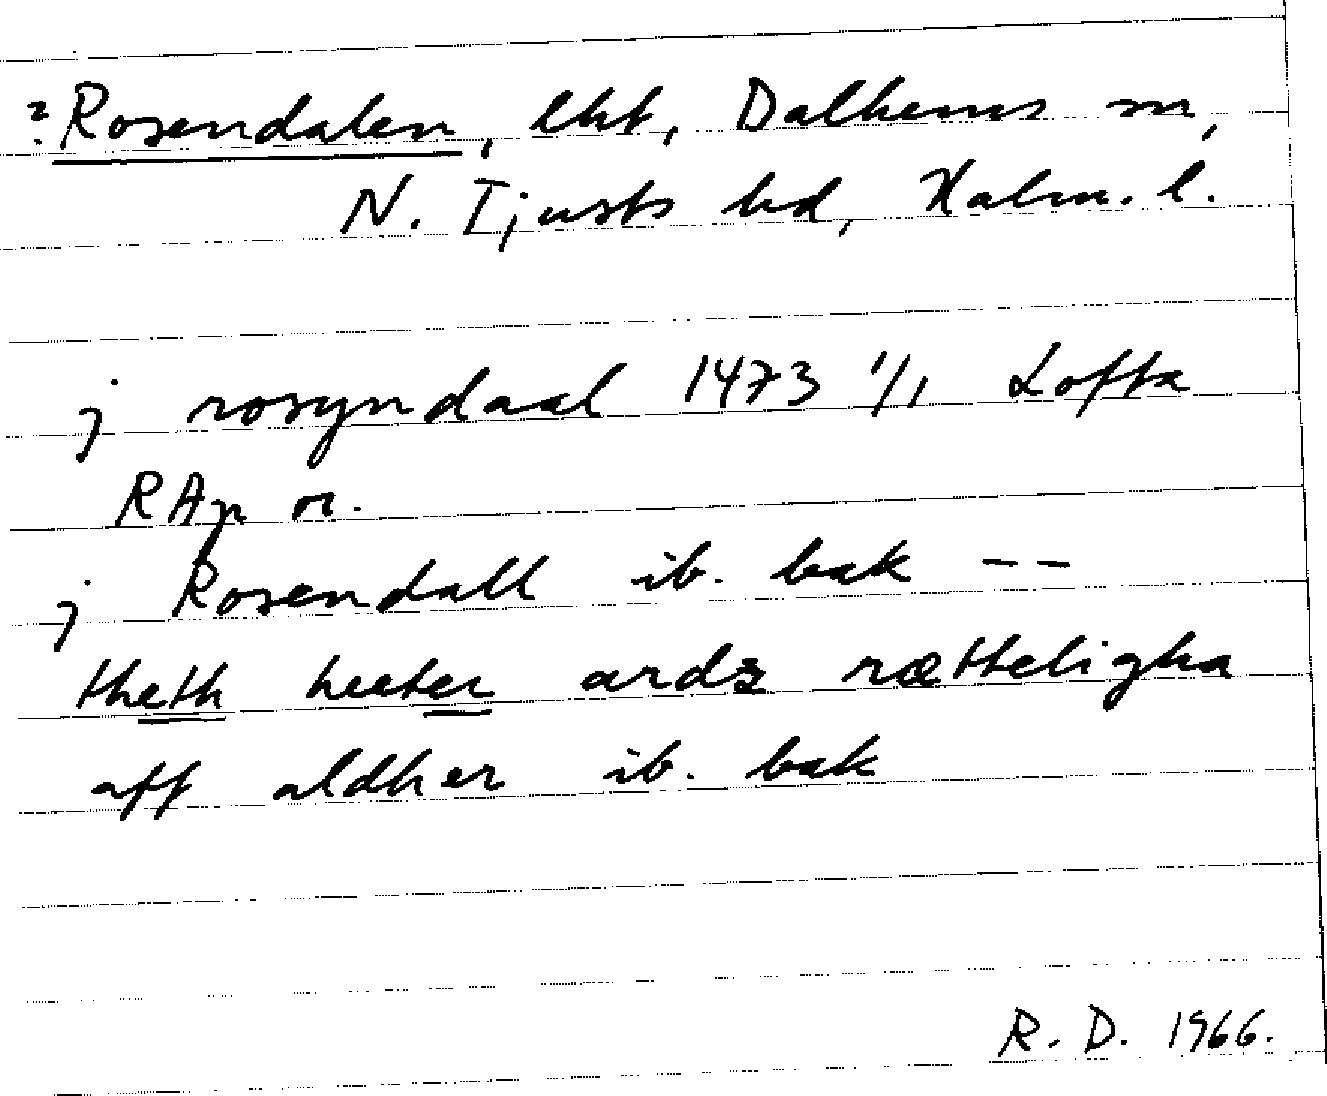 ?Rosendalen, lht, Dalhems sn,
N. Tjusts hd, Kalm. l.
j rosyndaal 1473 1/1 Lofta
RAp or.
j Rosendall ib. bak --
theth heeter ardz rætteligha
aff aldher ib. bak
R. D. 1966.